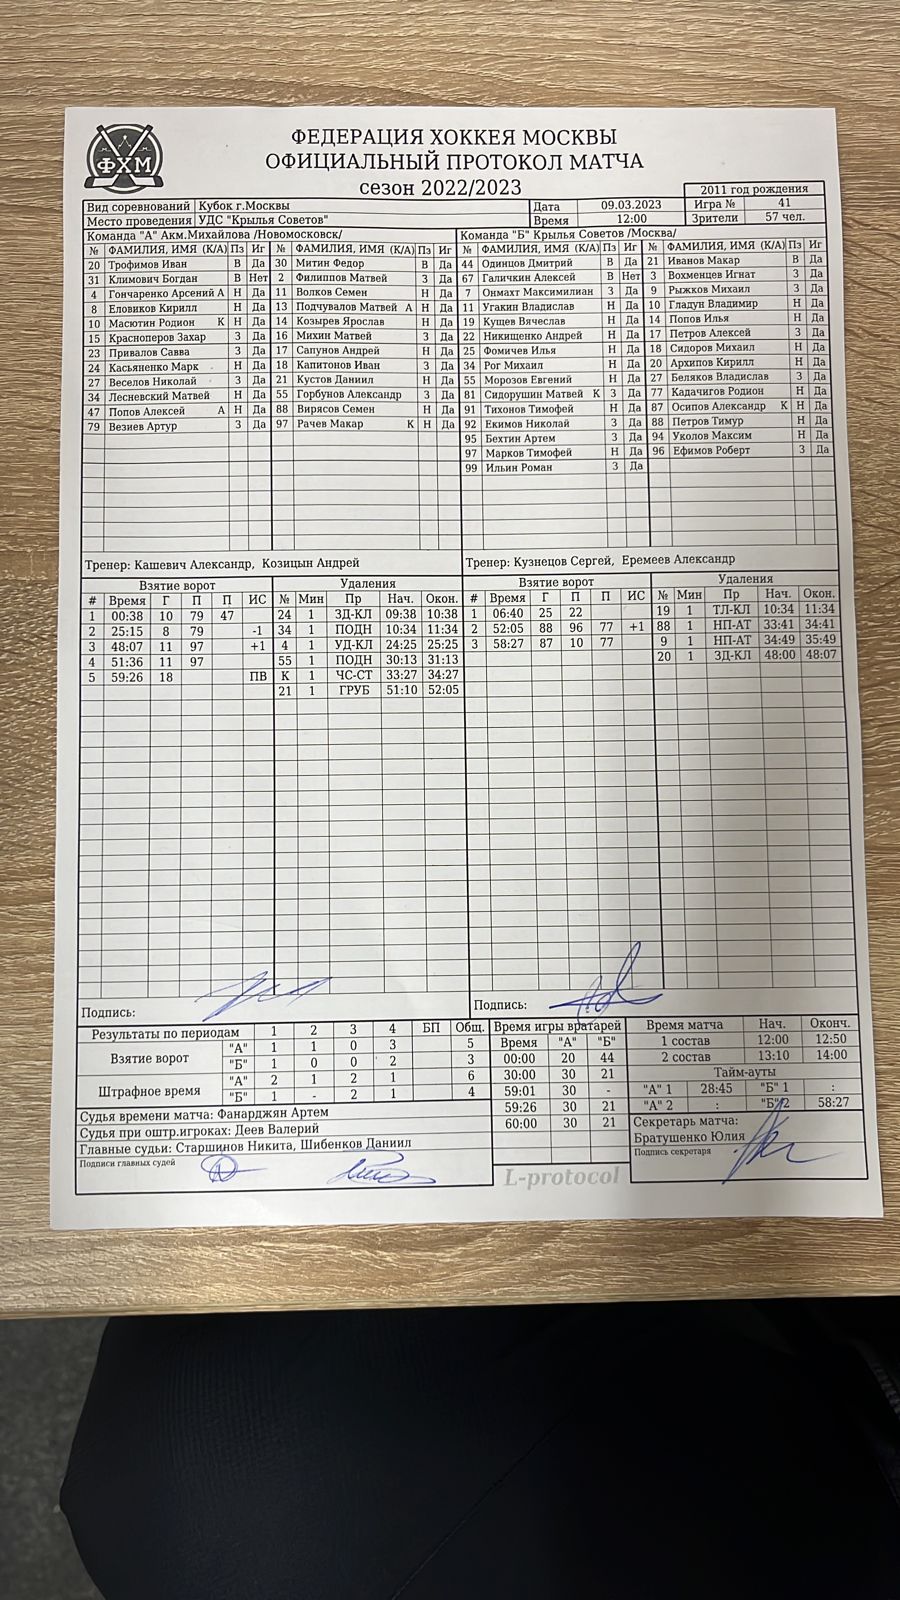 ФХМ
ФЕДЕРАЦИЯ ХОККЕЯ МОСКВЫ
ОФИЦИАЛЬНЫЙ ПРОТОКОЛ МАТЧА
сезон 2022/2023
2011 год рождения
Вид соревнований Кубок г.Москвы Дата 09.03.2023 Игра № 41
Место проведения УДС "Крылья Советов" Время 12:00 Зрители 57 чел.
Команда "А" Акм.Михайлова /Новомосковск/
№ ФАМИЛИЯ, ИМЯ (К/А) Пз Иг № ФАМИЛИЯ, ИМЯ (К/А) Пз Иг
20 Трофимов Иван В Да 30 Митин Федор В Да
31 Климович Богдан В Нет 2 Филиппов Матвей З Да
4 Гончаренко Арсений А Н Да 11 Волков Семен Н Да
8 Еловиков Кирилл Н Да 13 Подчувалов Матвей А Н Да
10 Масютин Родион К Н Да 14 Козырев Ярослав Н Да
15 Красноперов Захар З Да 16 Михин Матвей З Да
23 Привалов Савва З Да 17 Сапунов Андрей Н Да
24 Касьяненко Марк Н Да 18 Капитонов Иван З Да
27 Веселов Николай З Да 21 Кустов Даниил Н Да
34 Лесневский Матвей Н Да 55 Горбунов Александр З Да
47 Попов Алексей А Н Да 88 Вирясов Семен Н Да
79 Везиев Артур З Да 97 Рачев Макар К Н Да
Команда "Б" Крылья Советов /Москва/
№ ФАМИЛИЯ, ИМЯ (К/А) Пз Иг № ФАМИЛИЯ, ИМЯ (К/А) Пз Иг
44 Одинцов Дмитрий В Да 21 Иванов Макар В Да
67 Галичкин Алексей В Нет 3 Вохменцев Игнат З Да
7 Онмахт Максимилиан З Да 9 Рыжков Михаил З Да
11 Угакин Владислав Н Да 10 Гладун Владимир Н Да
19 Кущев Вячеслав Н Да 14 Попов Илья Н Да
22 Никищенко Андрей Н Да 17 Петров Алексей З Да
25 Фомичев Илья Н Да 18 Сидоров Михаил Н Да
34 Рог Михаил Н Да 20 Архипов Кирилл Н Да
55 Морозов Евгений Н Да 27 Беляков Владислав З Да
81 Сидорушин Матвей К З Да 77 Кадачигов Родион Н Да
91 Тихонов Тимофей Н Да 87 Осипов Александр К Н Да
92 Екимов Николай З Да 88 Петров Тимур Н Да
95 Бехтин Артем З Да 94 Уколов Максим Н Да
97 Марков Тимофей Н Да 96 Ефимов Роберт З Да
99 Ильин Роман З Да
Тренер: Кашевич Александр, Козицын Андрей
Тренер: Кузнецов Сергей, Еремеев Александр
Взятие ворот Удаления
# Время Г П П ИС № Мин Пр Нач. Окон.
1 00:38 10 79 47 24 1 ЗД-КЛ 09:38 10:38
2 25:15 8 79 -1 34 1 ПОДН 10:34 11:34
3 48:07 11 97 +1 4 1 УД-КЛ 24:25 25:25
4 51:36 11 97 55 1 ПОДН 30:13 31:13
5 59:26 18 ПВ К 1 ЧС-СТ 33:27 34:27
21 1 ГРУБ 51:10 52:05
Взятие ворот Удаления
# Время Г П П ИС № Мин Пр Нач. Окон.
1 06:40 25 22 19 1 ТЛ-КЛ 10:34 11:34
2 52:05 88 96 77 +1 88 1 НП-АТ 33:41 34:41
3 58:27 87 10 77 9 1 НП-АТ 34:49 35:49
20 1 ЗД-КЛ 48:00 48:07
Подпись:
Подпись:
Результаты по периодам 1 2 3 4 БП Общ.
Взятие ворот "А" 1 1 0 3 5
"Б" 1 0 0 2 3
Штрафное время "А" 2 1 2 1 6
"Б" 1 - 2 1 4
Судья времени матча: Фанарджян Артем
Судья при оштр.игроках: Деев Валерий
Главные судьи: Старшинов Никита, Шибенков Даниил
Подписи главных судей
Время игры вратарей
Время "А" "Б"
00:00 20 44
30:00 30 21
59:01 30 -
59:26 30 21
60:00 30 21
L-protocol
Время матча Нач. Оконч.
1 состав 12:00 12:50
2 состав 13:10 14:00
Тайм-ауты
"А" 1 28:45 "Б" 1 :
"А" 2 : "Б" 2 58:27
Секретарь матча:
Братушенко Юлия
Подпись секретаря